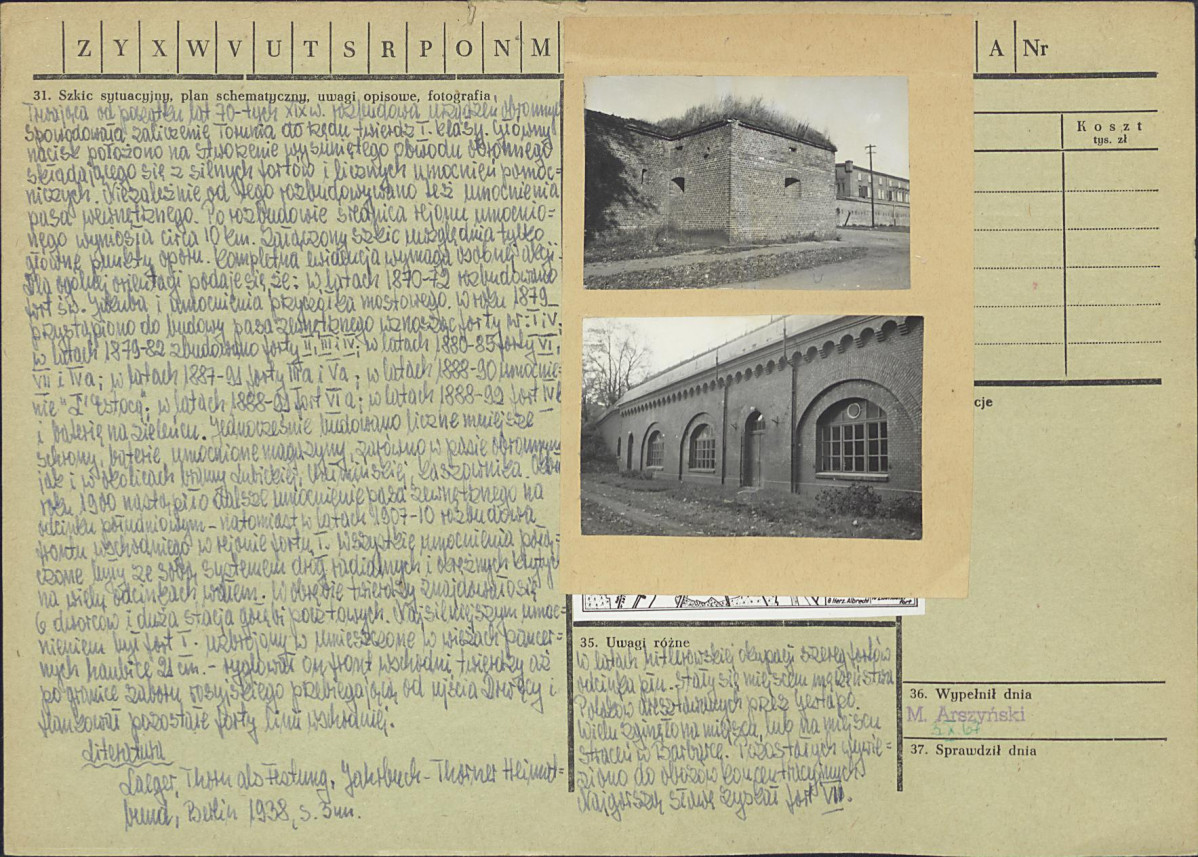 Z Y X W V U T S R P O N M
A Nr
31. Szkic sytuacyjny, plan schematyczny, uwagi opisowe, fotografia
Trwająca od początku lat 70-tych XIX w. rozbudowa urządzeń obronnych
spowodowała zaliczenie Torunia do rzędu twierdz I. klasy. Główny
nacisk położono na stworzenie wysuniętego obwodu obronnego
składającego się z silnych fortów i licznych umocnień pomoc-
niczych. Niezależnie od tego rozbudowywano też umocnienia
pasa wewnętrznego. Po rozbudowie średnica rejonu umocnio-
nego wynosiła circa 10 km. Załączony szkic uwzględnia tylko
główne punkty oporu. Kompletna ewidencja wymaga osobnej akcji.
Dla ogólnej orientacji podaje się, że: w latach 1870-72 rozbudowano
fort św. Jakuba i umocnienia przyczółka mostowego, w roku 1879
przystąpiono do budowy pasa zewnętrznego wznosząc forty nr: I i V;
w latach 1879-82 zbudowano forty II, III i IV; w latach 1880-85 forty VI,
VII i IVa; w latach 1887-91 forty IIIa i Va; w latach 1888-90 umocnie-
nie "L'Estocq"; w latach 1888-92 fort VI a; w latach 1888-92 fort IV b
i baterię na zieleńcu. Jednocześnie budowano liczne mniejsze
schrony, baterie, umocnione magazyny, zarówno w pasie obronnym
jak i w okolicach bramy Lubickiej, Chełmińskiej, Kaszownika. Około
roku 1900 nastąpiło dalsze umocnienie pasa zewnętrznego na
odcinku południowym - natomiast w latach 1907-10 rozbudowa
frontu wschodniego w rejonie fortu I. Wszystkie umocnienia połą-
czone były ze sobą systemem dróg radialnych i okrężnych krytych
na wielu odcinkach wałem. W obrębie twierdzy znajdowało się
6 dworców i duża stacja gołębi pocztowych. Najsilniejszym umoc-
nieniem był fort I. - uzbrojony w umieszczone w wieżach pancer-
nych haubice 21 cm. - ryglował on front wschodni twierdzy aż
po granicę zaboru rosyjskiego przebiegającą od ujścia Drwęcy i
flankował pozostałe forty linii wschodniej.
Literatura
Laeger, Thorn als Festung, Jahrbuch - Thorner Heimat-
bund, Berlin 1938, s. 5 nn.
Koszt
tys. zł
cje
Herz. Albrecht
35. Uwagi różne
W latach hitlerowskiej okupacji szereg fortów
odcinka płn. stały się miejscem męczeństwa
Polaków aresztowanych przez Gestapo.
Wielu zginęło na miejscu, lub na miejscu
straceń w Barbarce. Pozostałych wywie-
ziono do obozów koncentracyjnych
Najgorszą sławę zyskał fort VII.
36. Wypełnił dnia
M. Arszyński
37. Sprawdził dnia